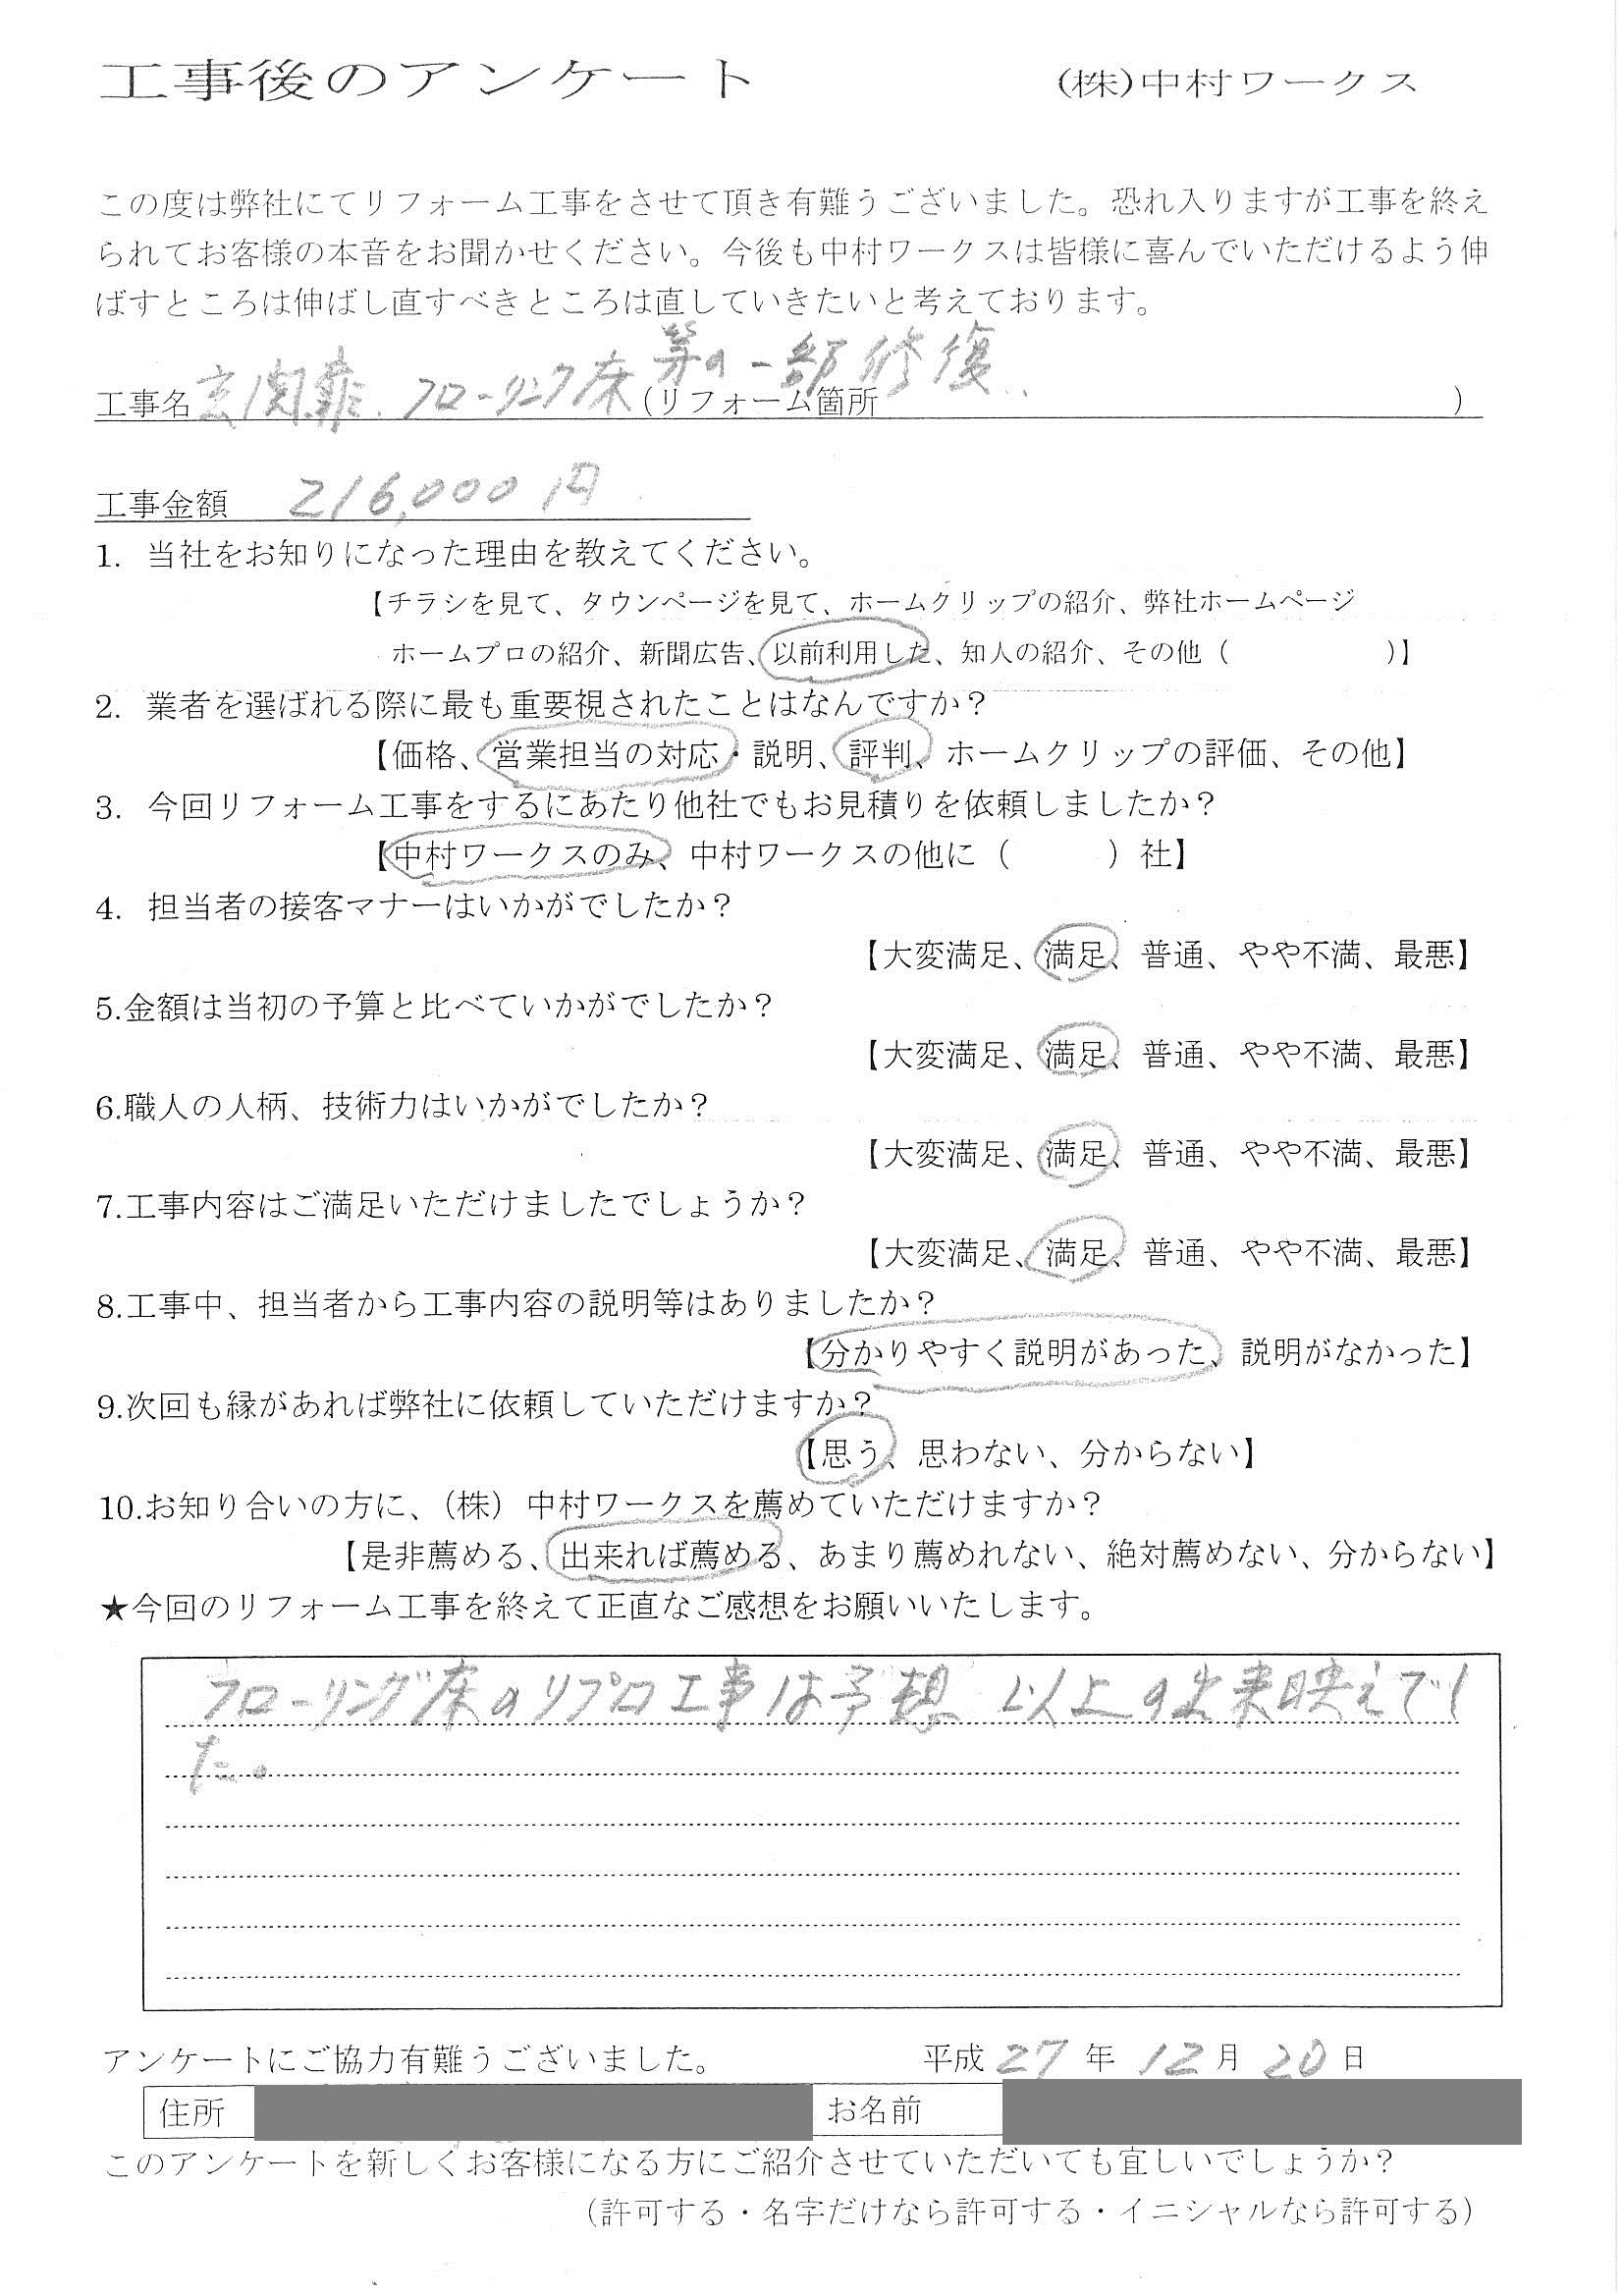 工事後のアンケート (株)中村ワークス
この度は弊社にてリフォーム工事をさせて頂き有難うございました。恐れ入りますが工事を終え
られてお客様の本音をお聞かせください。今後も中村ワークスは皆様に喜んでいただけるよう伸
ばすところは伸ばし直すべきところは直していきたいと考えております。
工事名 玄関扉、フローリング床等の一部修復 (リフォーム箇所 )
工事金額 216,000円
1. 当社をお知りになった理由を教えてください。
【チラシを見て、タウンページを見て、ホームクリップの紹介、弊社ホームページ
ホームプロの紹介、新聞広告、以前利用した、知人の紹介、その他（ )】
2. 業者を選ばれる際に最も重要視されたことはなんですか？
【価格、営業担当の対応・説明、評判、ホームクリップの評価、その他】
3. 今回リフォーム工事をするにあたり他社でもお見積りを依頼しましたか？
【中村ワークスのみ、中村ワークスの他に（ ）社】
4. 担当者の接客マナーはいかがでしたか？
【大変満足、満足、普通、やや不満、最悪】
5.金額は当初の予算と比べていかがでしたか？
【大変満足、満足、普通、やや不満、最悪】
6.職人の人柄、技術力はいかがでしたか？
【大変満足、満足、普通、やや不満、最悪】
7.工事内容はご満足いただけましたでしょうか？
【大変満足、満足、普通、やや不満、最悪】
8.工事中、担当者から工事内容の説明等はありましたか？
【分かりやすく説明があった、説明がなかった】
9.次回も縁があれば弊社に依頼していただけますか？
【思う、思わない、分からない】
10.お知り合いの方に、（株）中村ワークスを薦めていただけますか？
【是非薦める、出来れば薦める、あまり薦めれない、絶対薦めない、分からない】
★今回のリフォーム工事を終えて正直なご感想をお願いいたします。
フローリング床のリプロ工事は予想以上の出来映えでし
た。
アンケートにご協力有難うございました。 平成 27 年 12 月 20 日
住所 お名前
このアンケートを新しくお客様になる方にご紹介させていただいても宜しいでしょうか？
（許可する・名字だけなら許可する・イニシャルなら許可する）